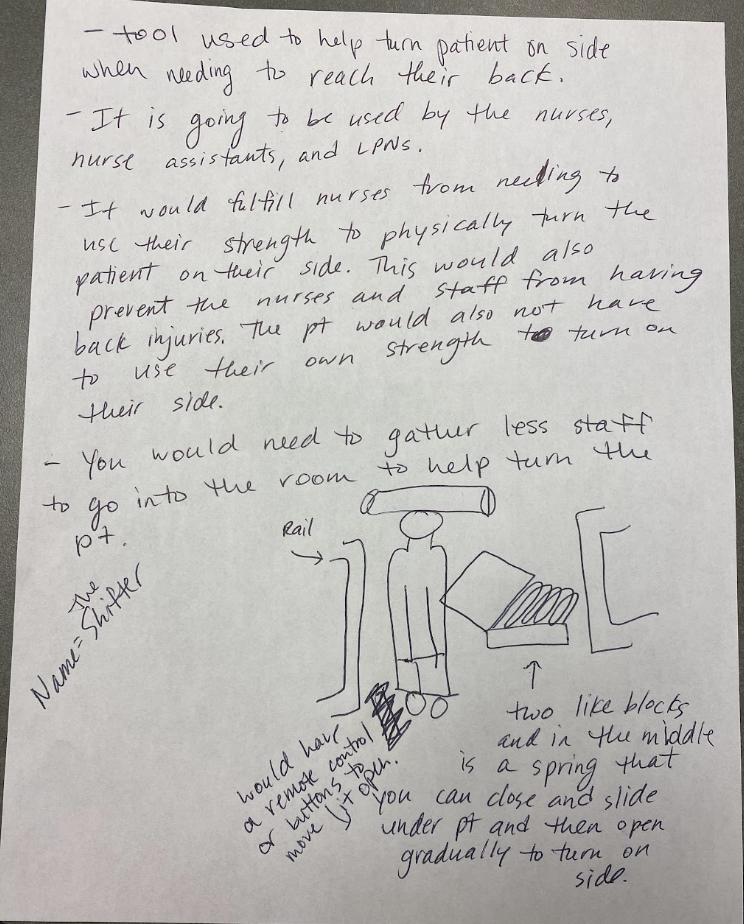 - tool used to help turn patient on side
when needing to reach their back.
- It is going to be used by the nurses,
nurse assistants, and LPNs.
- It would fulfill nurses from needing to
use their strength to physically turn the
patient on their side. This would also
prevent the nurses and staff from having
back injuries. The pt would also not have
to use their own strength to turn on
their side.
- You would need to gather less staff
to go into the room to help turn the
pt.
Rail
Name = The
Shifter
two like blocks
and in the middle
is a spring that
you can close and slide
under pt and then open
gradually to turn on
side.
would have
a remote control
or buttons to
move it open.